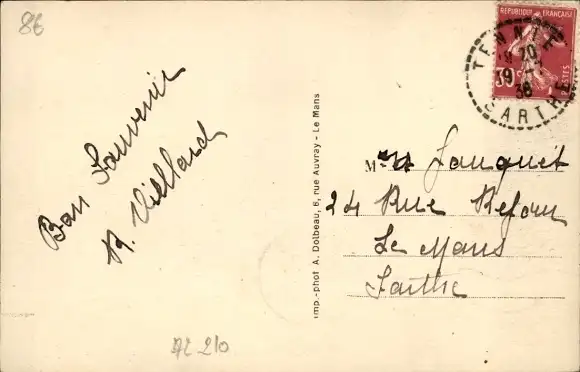 8€
Bon Souvenir
R. Villard
Imp.-phot A. Dolbeau, 6, rue Auvray - Le Mans
RÉPUBLIQUE FRANÇAISE
POSTES
TENNIE
20
9
38
SARTHE
M Jouquet
24 Rue
Le Mans
Sarthe
72 210